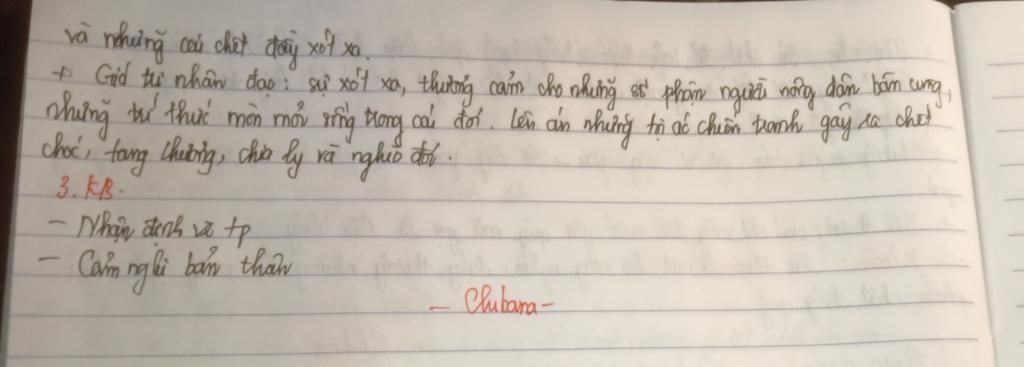 và những cái chết đầy xót xa.
+ Giá trị nhân đạo: sự xót xa, thương cảm cho những số phận người nông dân bần cùng,
những trí thức mòn mỏi sống trong cái đói. Lên án những tội ác chiến tranh gây ra chết
chóc, tang thương, chia ly và nghèo đói.
3. KB.
- Nhận định về tp
- Cảm nghĩ bản thân
- Chibara -